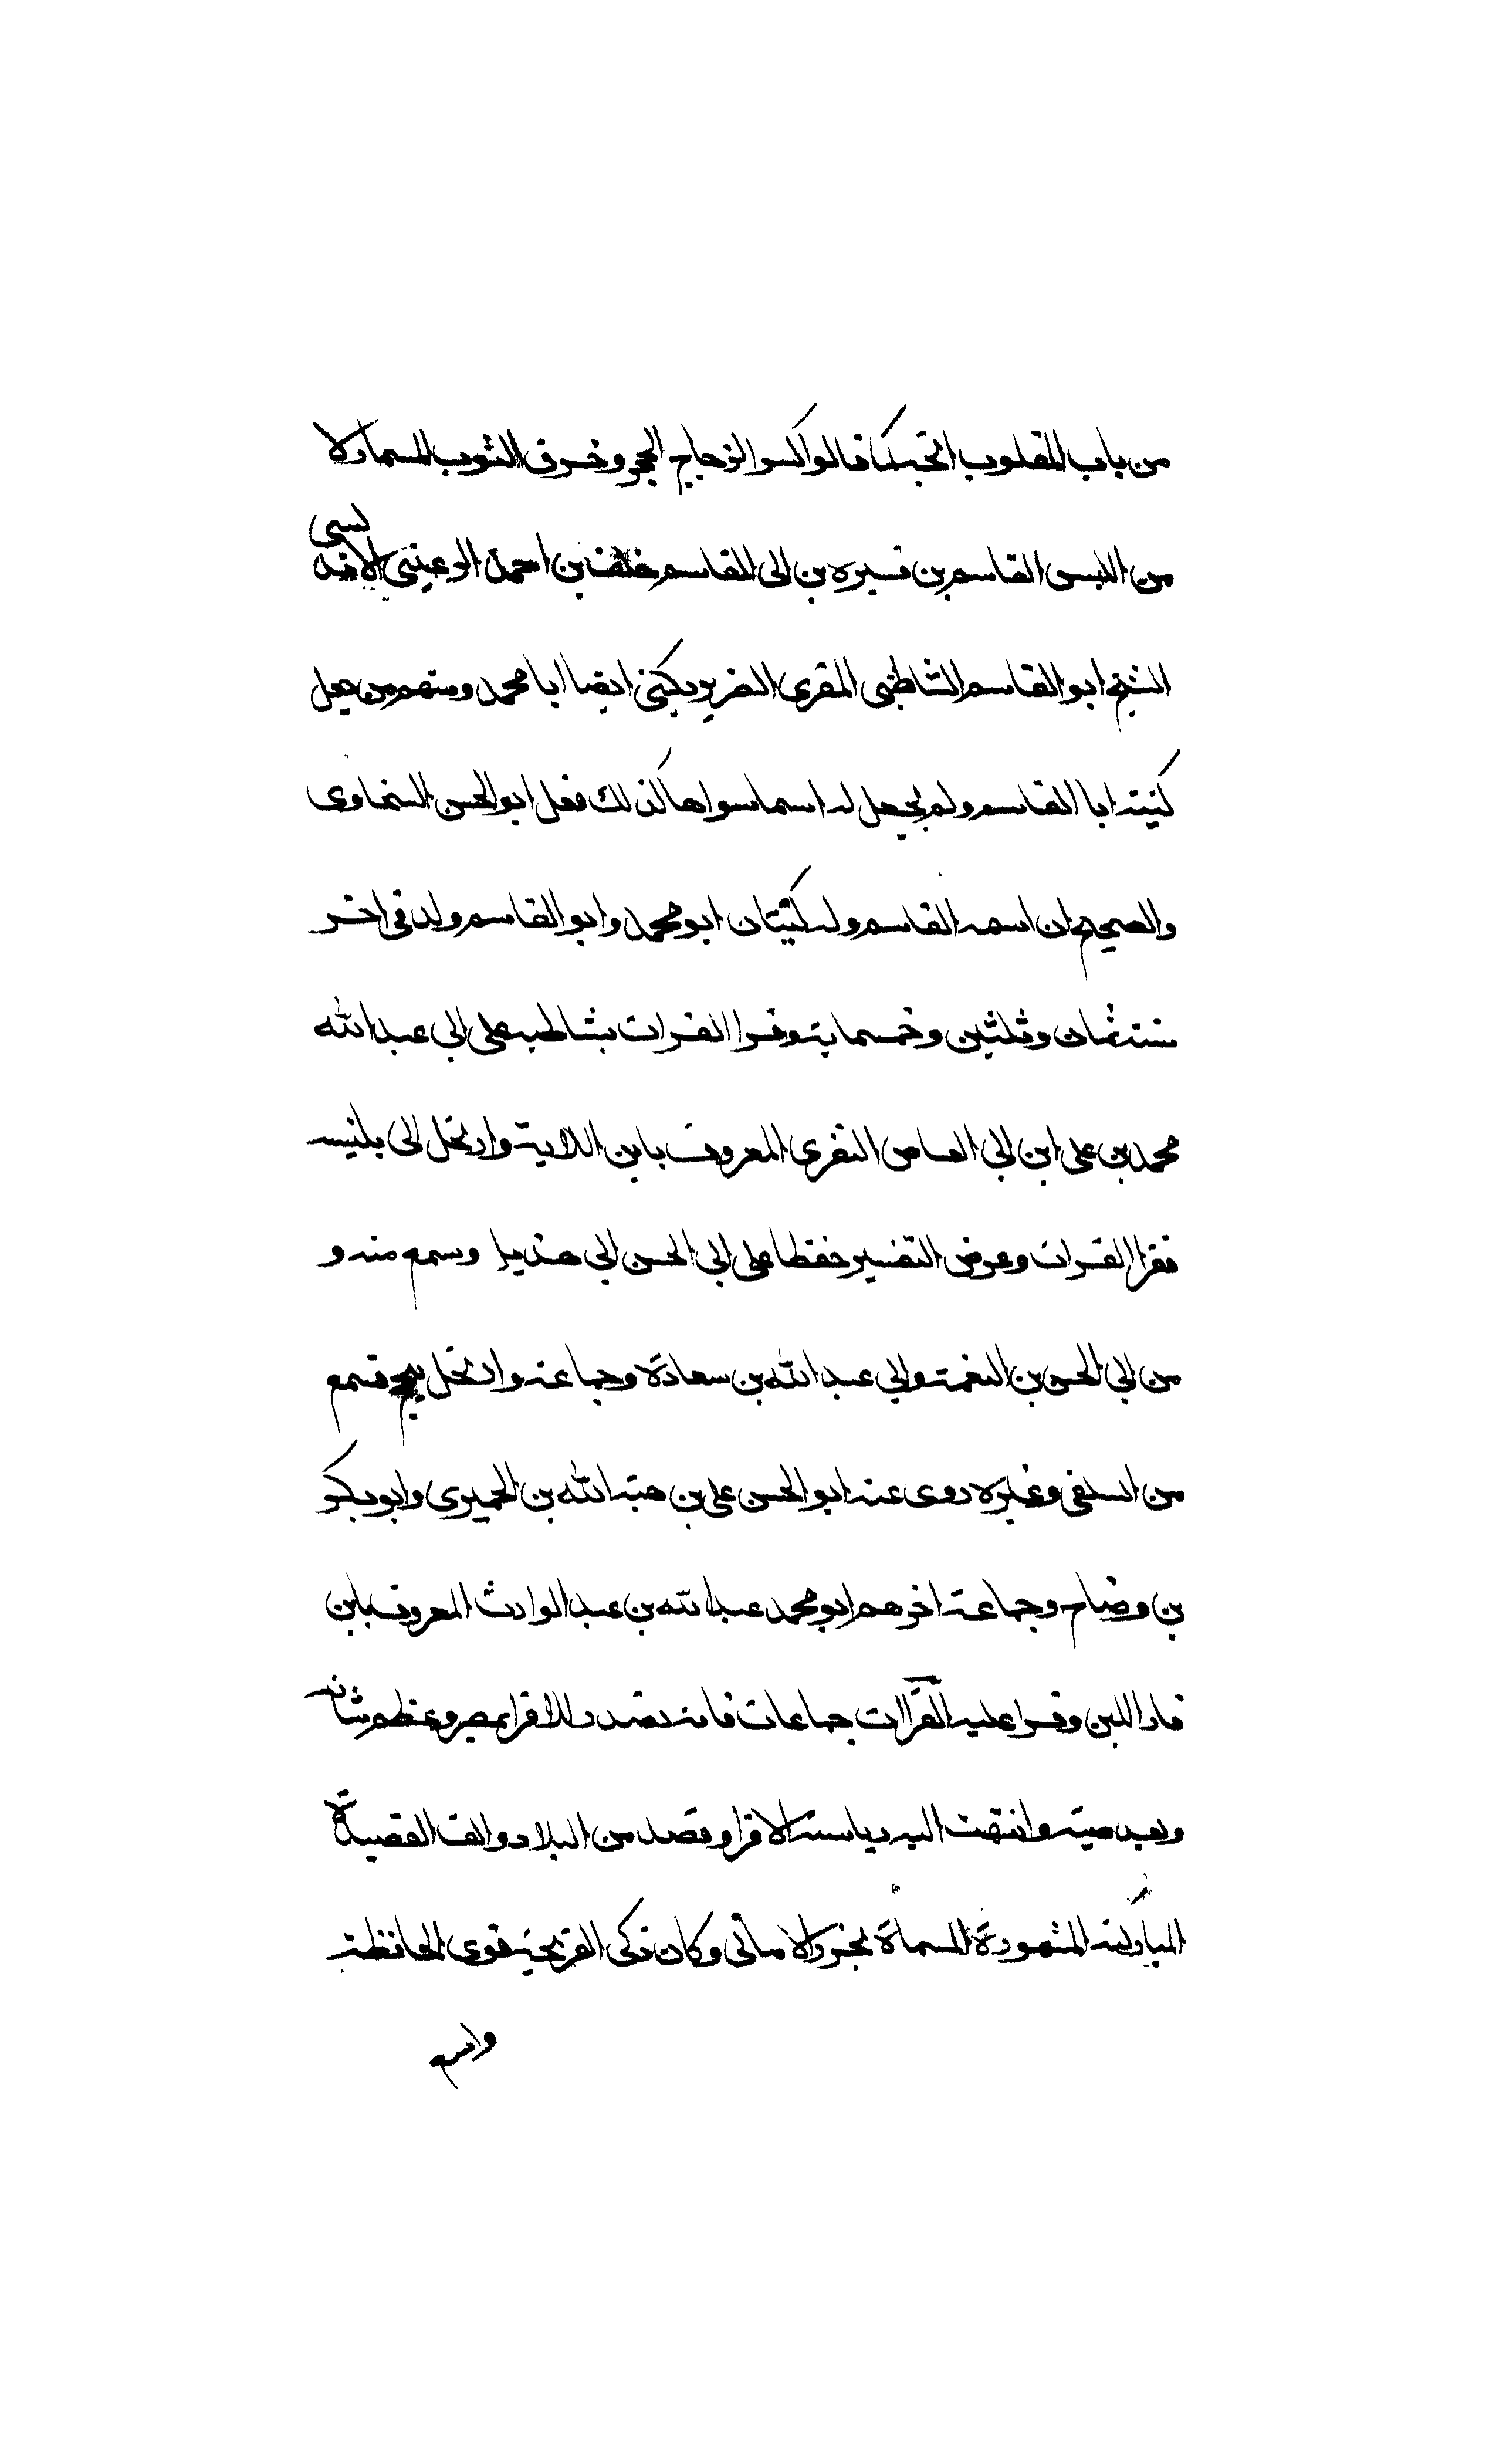 من باب المقلوب اتجه كما قالوا كسر الزجاج الحجر وخرق الثوب المسمار لا
من اللبس القاسم بن فيره بن ابى القاسم خلف بن احمد الرعينى الاندلسى
الشيخ ابو القاسم الشاطبى المقرى الضرير يكنى ايضا ابا محمد ومنهم من جعل
كنيته ابا القاسم ولم يجعل له اسما سواها كذلك فعل ابو الحسن السخاوى
والصحيح ان اسمه القاسم وله كنيتان ابو محمد وابو القاسم ولد فى اخر
سنة ثمان وثلثين وخمسماية وقرا القرات بشاطبه على ابي عبد الله
محمد بن على ابن ابي العاص النفرى المعروف بابن اللاية وارتحل الى بلنيسه
فقرا القرات وعرض التفسير حفظا على ابي الحسن ابي هذيل وسمع منه و
من ابي الحسن بن النعمة وابي عبد الله بن سعادة وجماعة وارتحل فسمع
من السلفى وغيره روى عنه ابو الحسن على بن هبة الله بن الجميرى وابو بكر
بن وضاح وجماعة اخرهم ابو محمد عبد الله بن عبد الوارث المعروف بابن
فار اللبن وقرا عليه القراات جماعات فانه تصدر للاقرا بمصر وعظم شانه
وبعد صيته وانتهت اليه رياسة الاقرا وقصد من البلاد والف القصيدة
المباركة المشهورة المسماة بحرز الامانى وكان ذكى القريحة قوى الحافظة
واسع